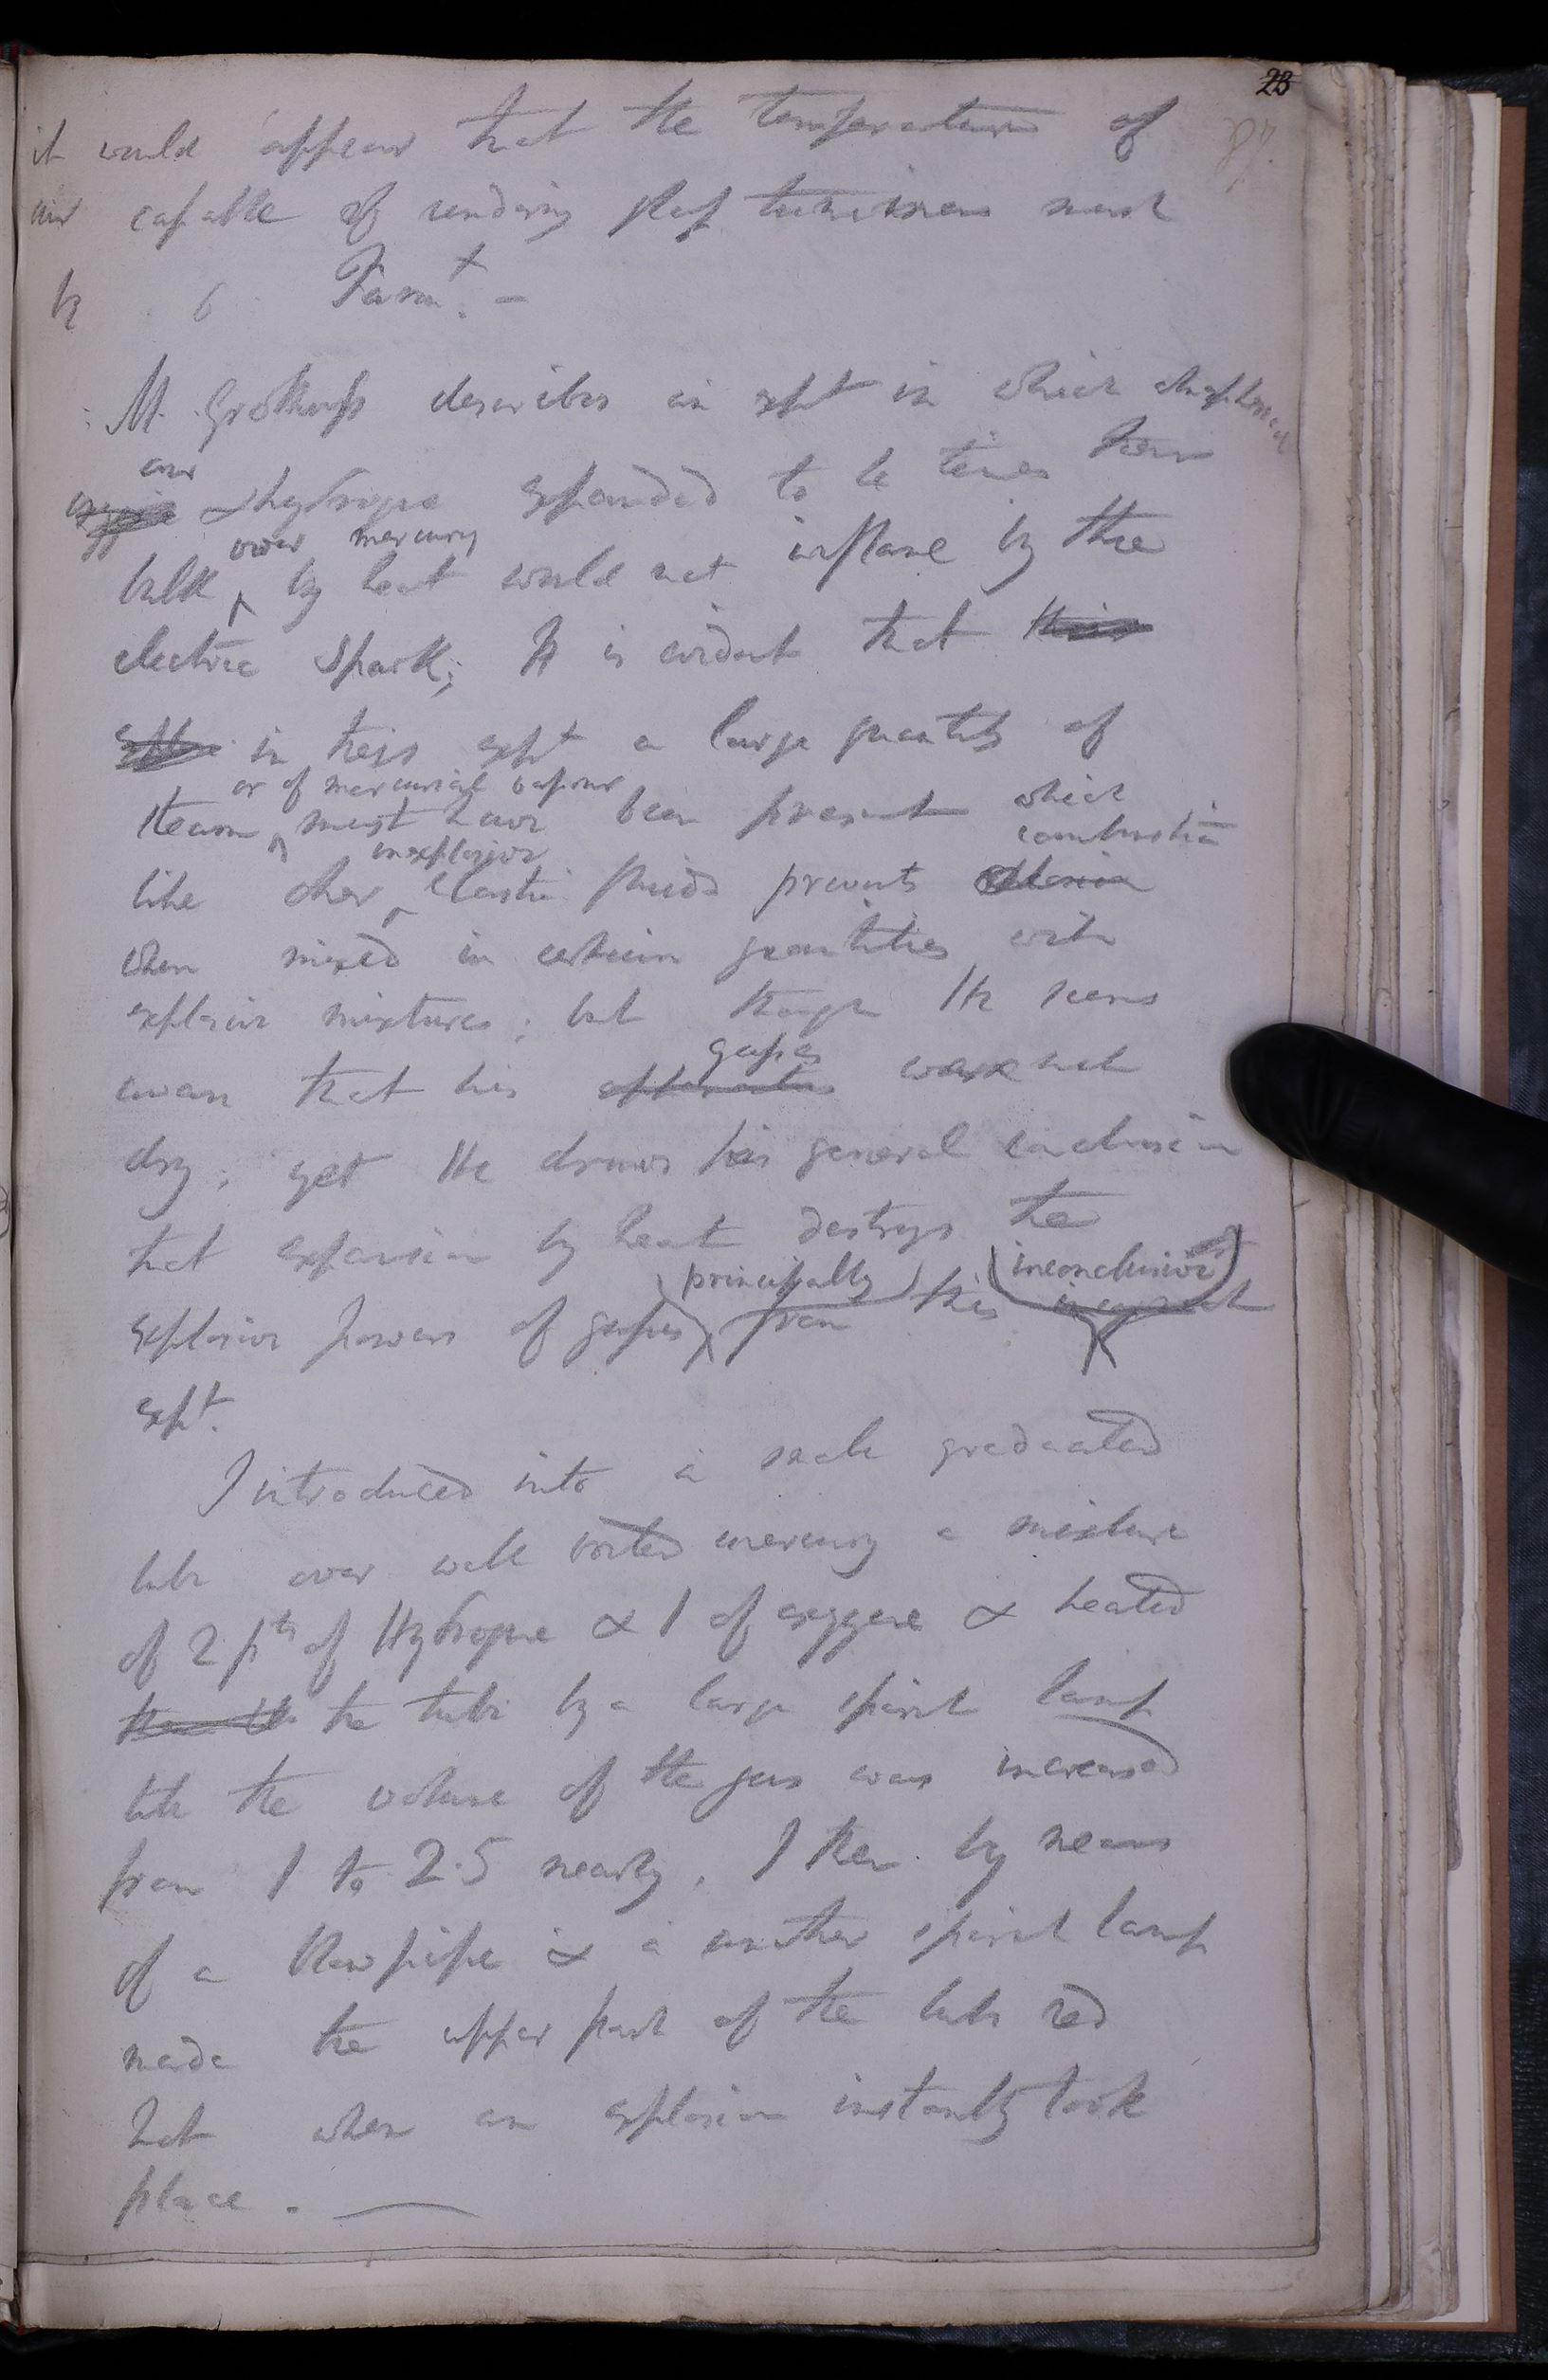 23
it would appear that the temperature of
air capable of rendering glass luminous must
be 6 Farnt. -
M. Grotthuss describes an expt in which atmospheric
air
oxygene & hydrogene expanded to 4 times their
over mercury
bulk by heat would not inflame by the
electric spark; It is evident that this
in this expt a large quantity of
or of mercurial vapour
steam must have been present which
inexplosive combustion
like other elastic fluids prevents explosion
when mixed in certain quantities with
explosive mixtures; but though He seems
gases
aware that his apparatus were not
dry; yet He draws his general conclusion
that expansion by heat destroys the
principally inconclusive
explosive powers of gases from this
expt.
I introduced into a small graduated
tube over well boiled mercury a mixture
of 2 pts of Hydrogene & 1 of oxygene & heated
the tube by a large spirit lamp
till the volume of the gas was increased
from 1 to 2.5 nearly. I then by means
of a blow pipe & a another spirit lamp
made the upper part of the tube red
hot when an explosion instantly took
place. —